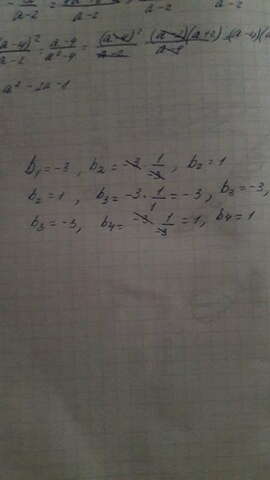 a-2 a-2 a-2
(a-4)² / a-2 : a-4 / a²-4 = (a-4)² / a-2 · (a-2)(a+2) / a-4
a² - 2a -
b₁ = -3, b₂ = -3 · 1/-3, b₂ = 1
b₂ = 1, b₃ = -3 · 1/1 = -3, b₃ = -3,
b₃ = -3, b₄ = -3 · 1/-3 = 1, b₄ = 1